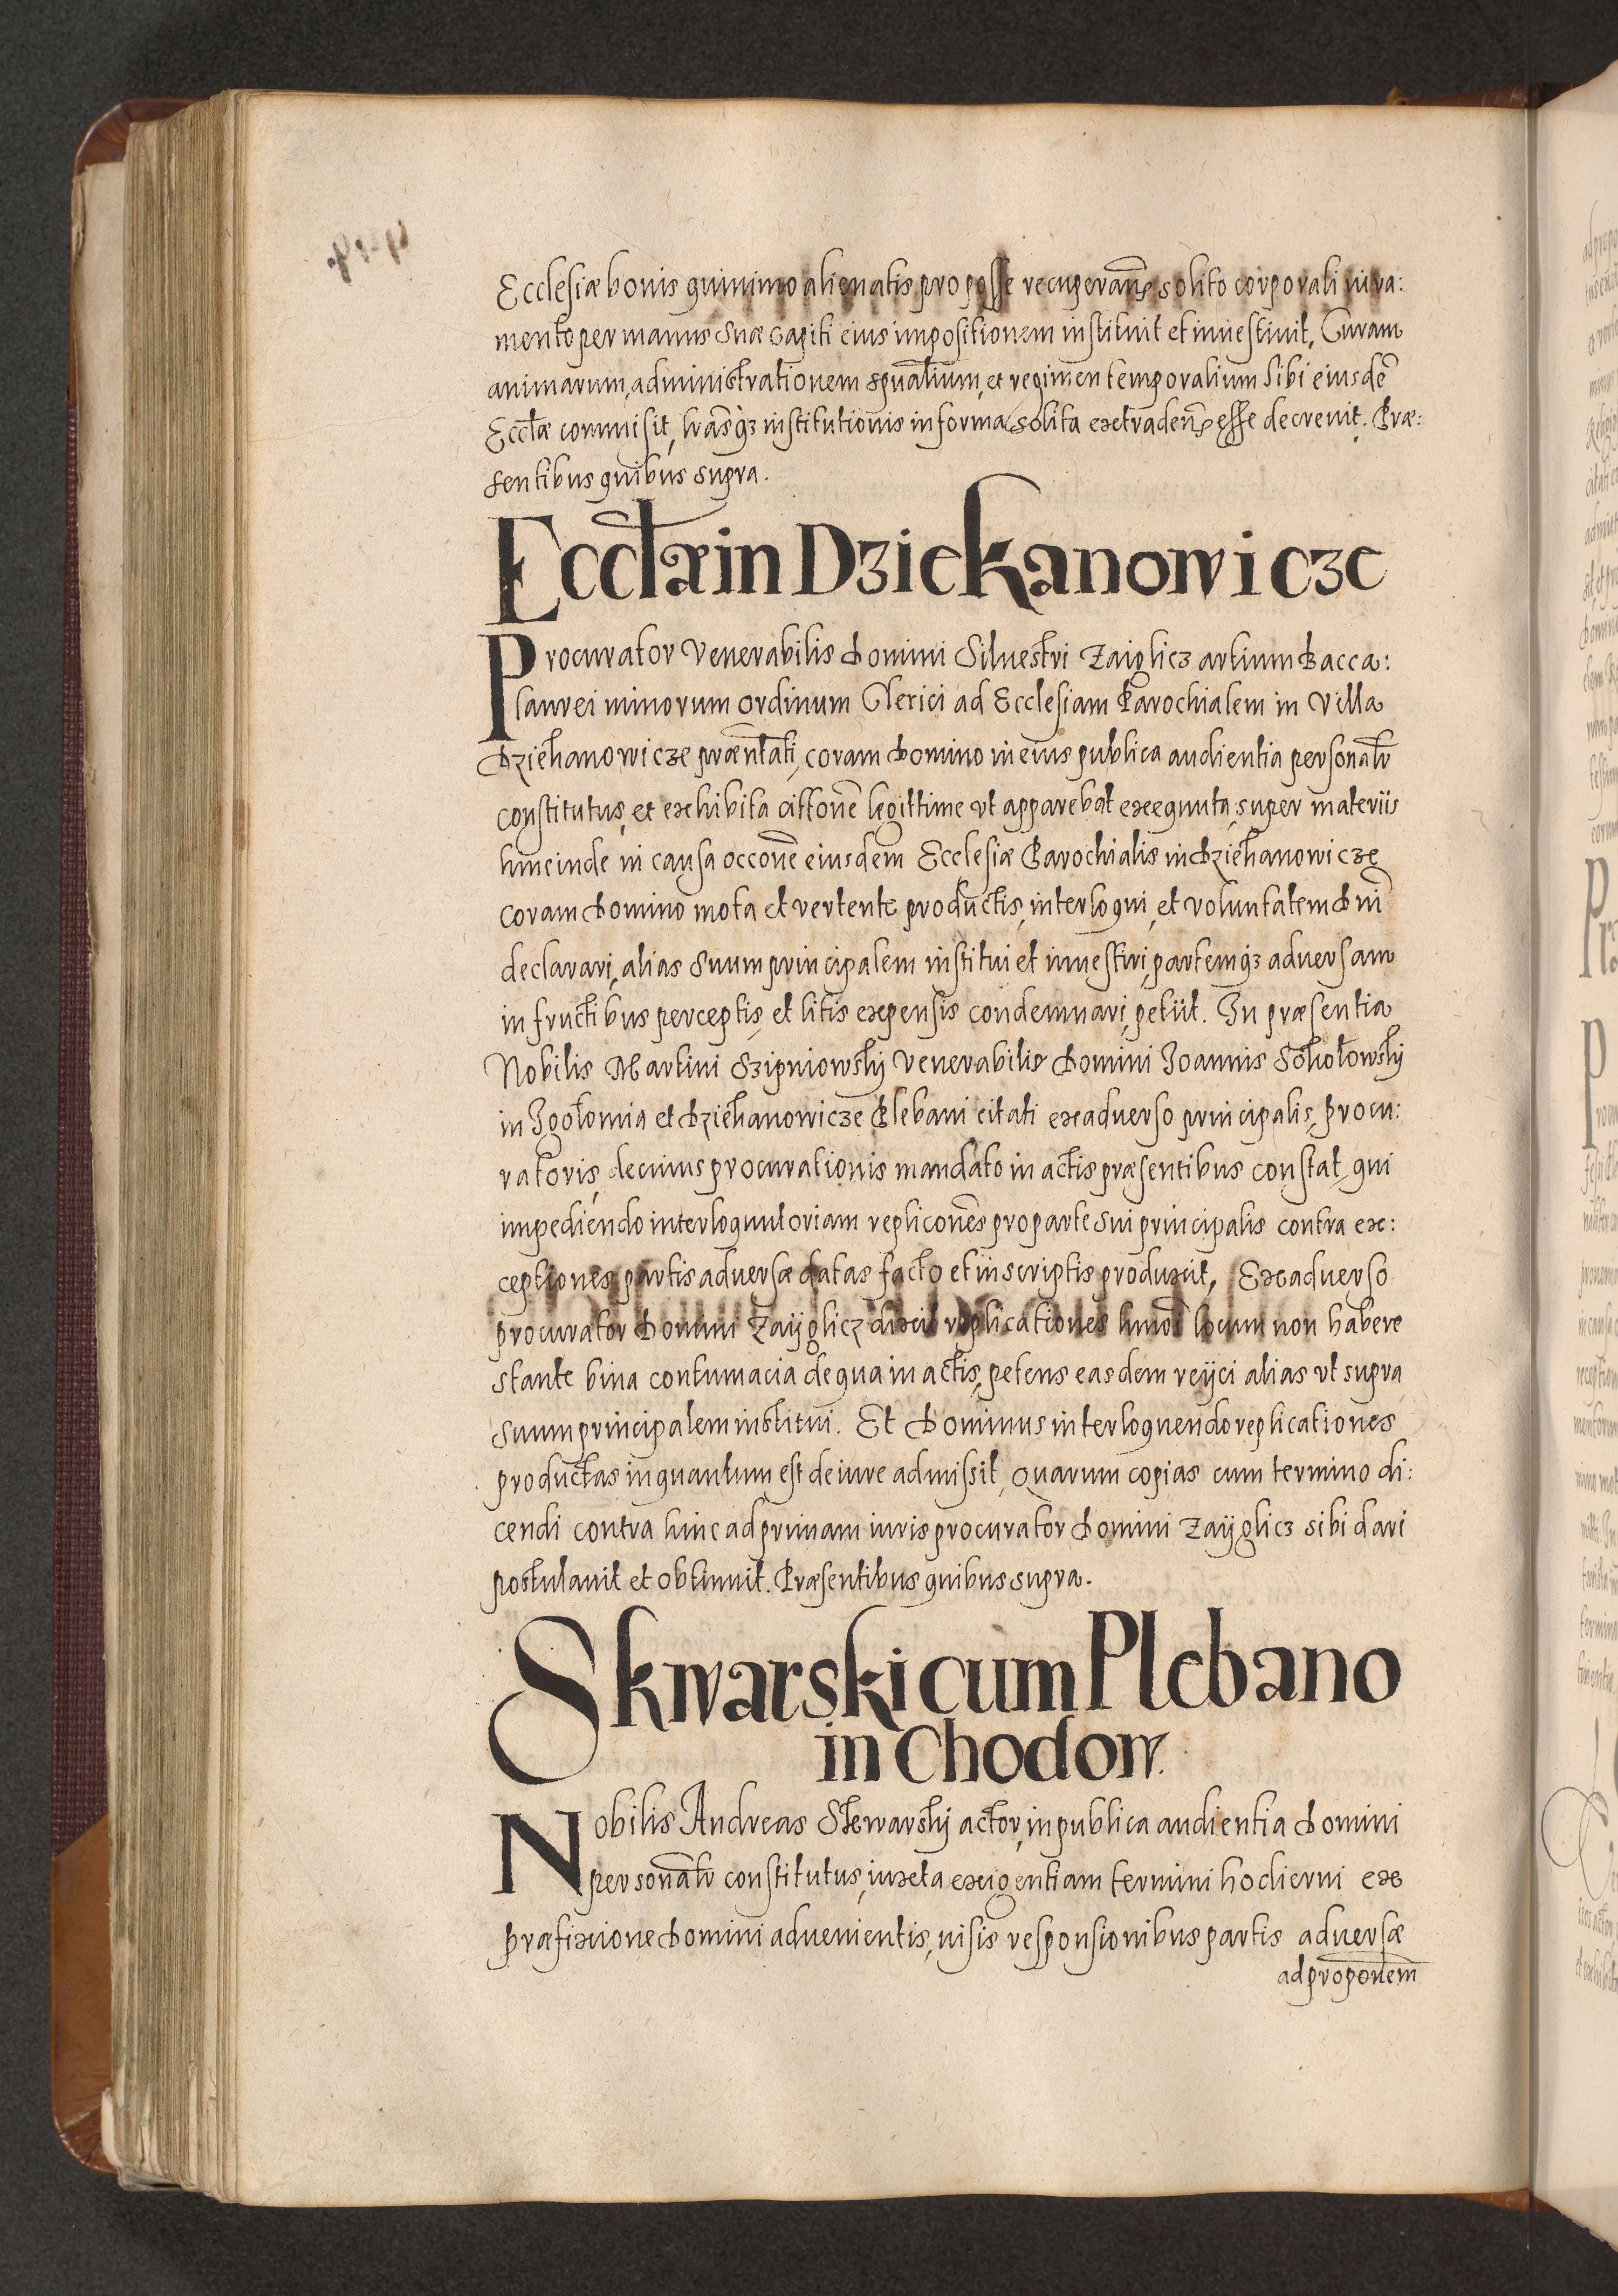 Ecclesiæ bonis quinimo alienatis pro posse recuperan̄ solito corporali iura:
mento per manus suæ capiti eius impositionem instituit et inuestiuit, Curam
animarum, administrationem spūalium, et regimen temporalium sibi eiusdē
Eccłæ commisit, l̄rasq̨ institutionis in forma solita extraden̄ esse decreuit. Præ:
sentibus quibus supra.
Eccłæ in Dziekanowicze
Procurator Venerabilis Domini Siluestri Zaiglicz artium Bacca:
laurei minorum ordinum Clerici ad Ecclesiam Parochialem in Villa
Dziekanowicze præn̄tati, coram Domino in eius publica audientia personalr̄
constitutus, et exhibita citt̄one legittime vt apparebat exequuta, super materiis
hincinde in causa occōne eiusdem Ecclesiæ Parochialis in Dziekanowicze
coram Domino mota et vertente productis, interloqui, et voluntatem Dn̄i
declarari, alias suum principalem institui et inuestiri, partemq̨ aduersam
in fructibus perceptis, et litis expensis condemnari, petiit. In præsentia
Nobilis Martini Szipniowsky Venerabilis Domini Joannis Sokołowsky
in Jgołomia et Dziekanowicze Plebani citati exaduerso principalis, procu:
ratoris, de cuius procurationis mandato in actis præsentibus constat, qui
impediendo interloquutoriam replicōnes pro parte sui principalis contra ex:
ceptiones partis aduersæ datas facto et in scriptis produxit, Exaduerso
procurator Domini Zayglicz dixit replicationes hmōi locum non habere
stante bina contumacia de qua in actis, petens easdem reyci alias vt supra
suum principalem institui. Et Dominus interloquendo replicationes
productas in quantum est de iure admisit, Quarum copias cum termino di:
cendi contra hinc ad primam iuris procurator Domini Zayglicz sibi dari
postulauit et obtinuit. Præsentibus quibus supra.
Skwarski cum Plebano
in Chodow.
Nobilis Andreas Skwarsky actor, in publica audientia Domini
personalr̄ constitutus, iuxta exigentiam termini hodierni ex
præfixione Domini aduenientis, uisis responsionibus partis aduersæ
ad propōnem